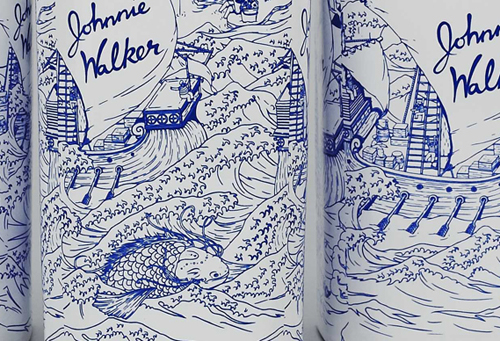 Johnnie
Walker
Johnn
Walk